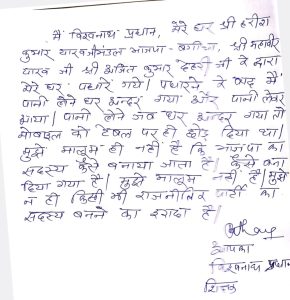 मैं विश्वनाथ प्रधान, मेरे घर श्री हरीश
कुमार यादव मंडल भाजपा - बगीचा, श्री महावीर
यादव जी श्री अजित कुमार जी के द्वारा
मेरे घर पधारे गये। पधारने के बाद मैं
पानी लेने घर अन्दर गया और पानी लेकर
आया। पानी लेने जब घर अन्दर गया तो
मोबाइल को टेबल पर ही छोड़ दिया था।
मुझे मालूम ही नहीं है कि भाजपा का
सदस्य कैसे बनाया जाता है। कैसे बना
दिया गया है। मुझे मालूम नहीं है। मुझे
न ही किसी भी राजनीतिक पार्टी का
सदस्य बनने का इरादा है।
आपका
विश्वनाथ प्रधान
शिक्षक